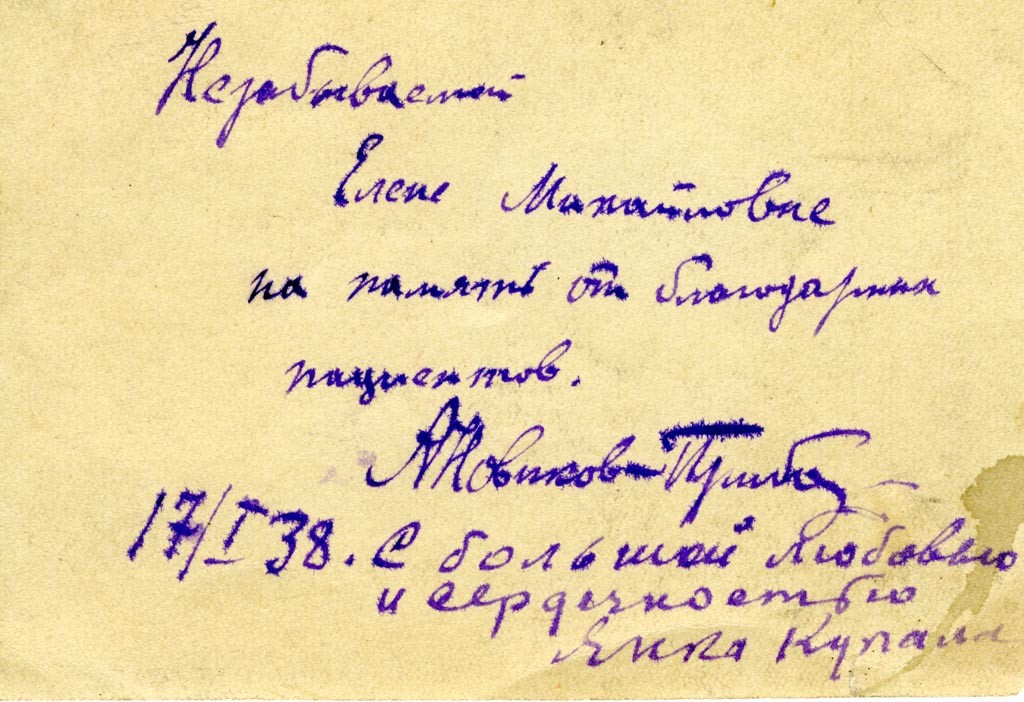 Незабываемой
Елене Михайловне
на память от благодарных
пациентов.
А Новиков-Прибой
17/I 38. С большой любовью
и сердечностью
Янка Купала